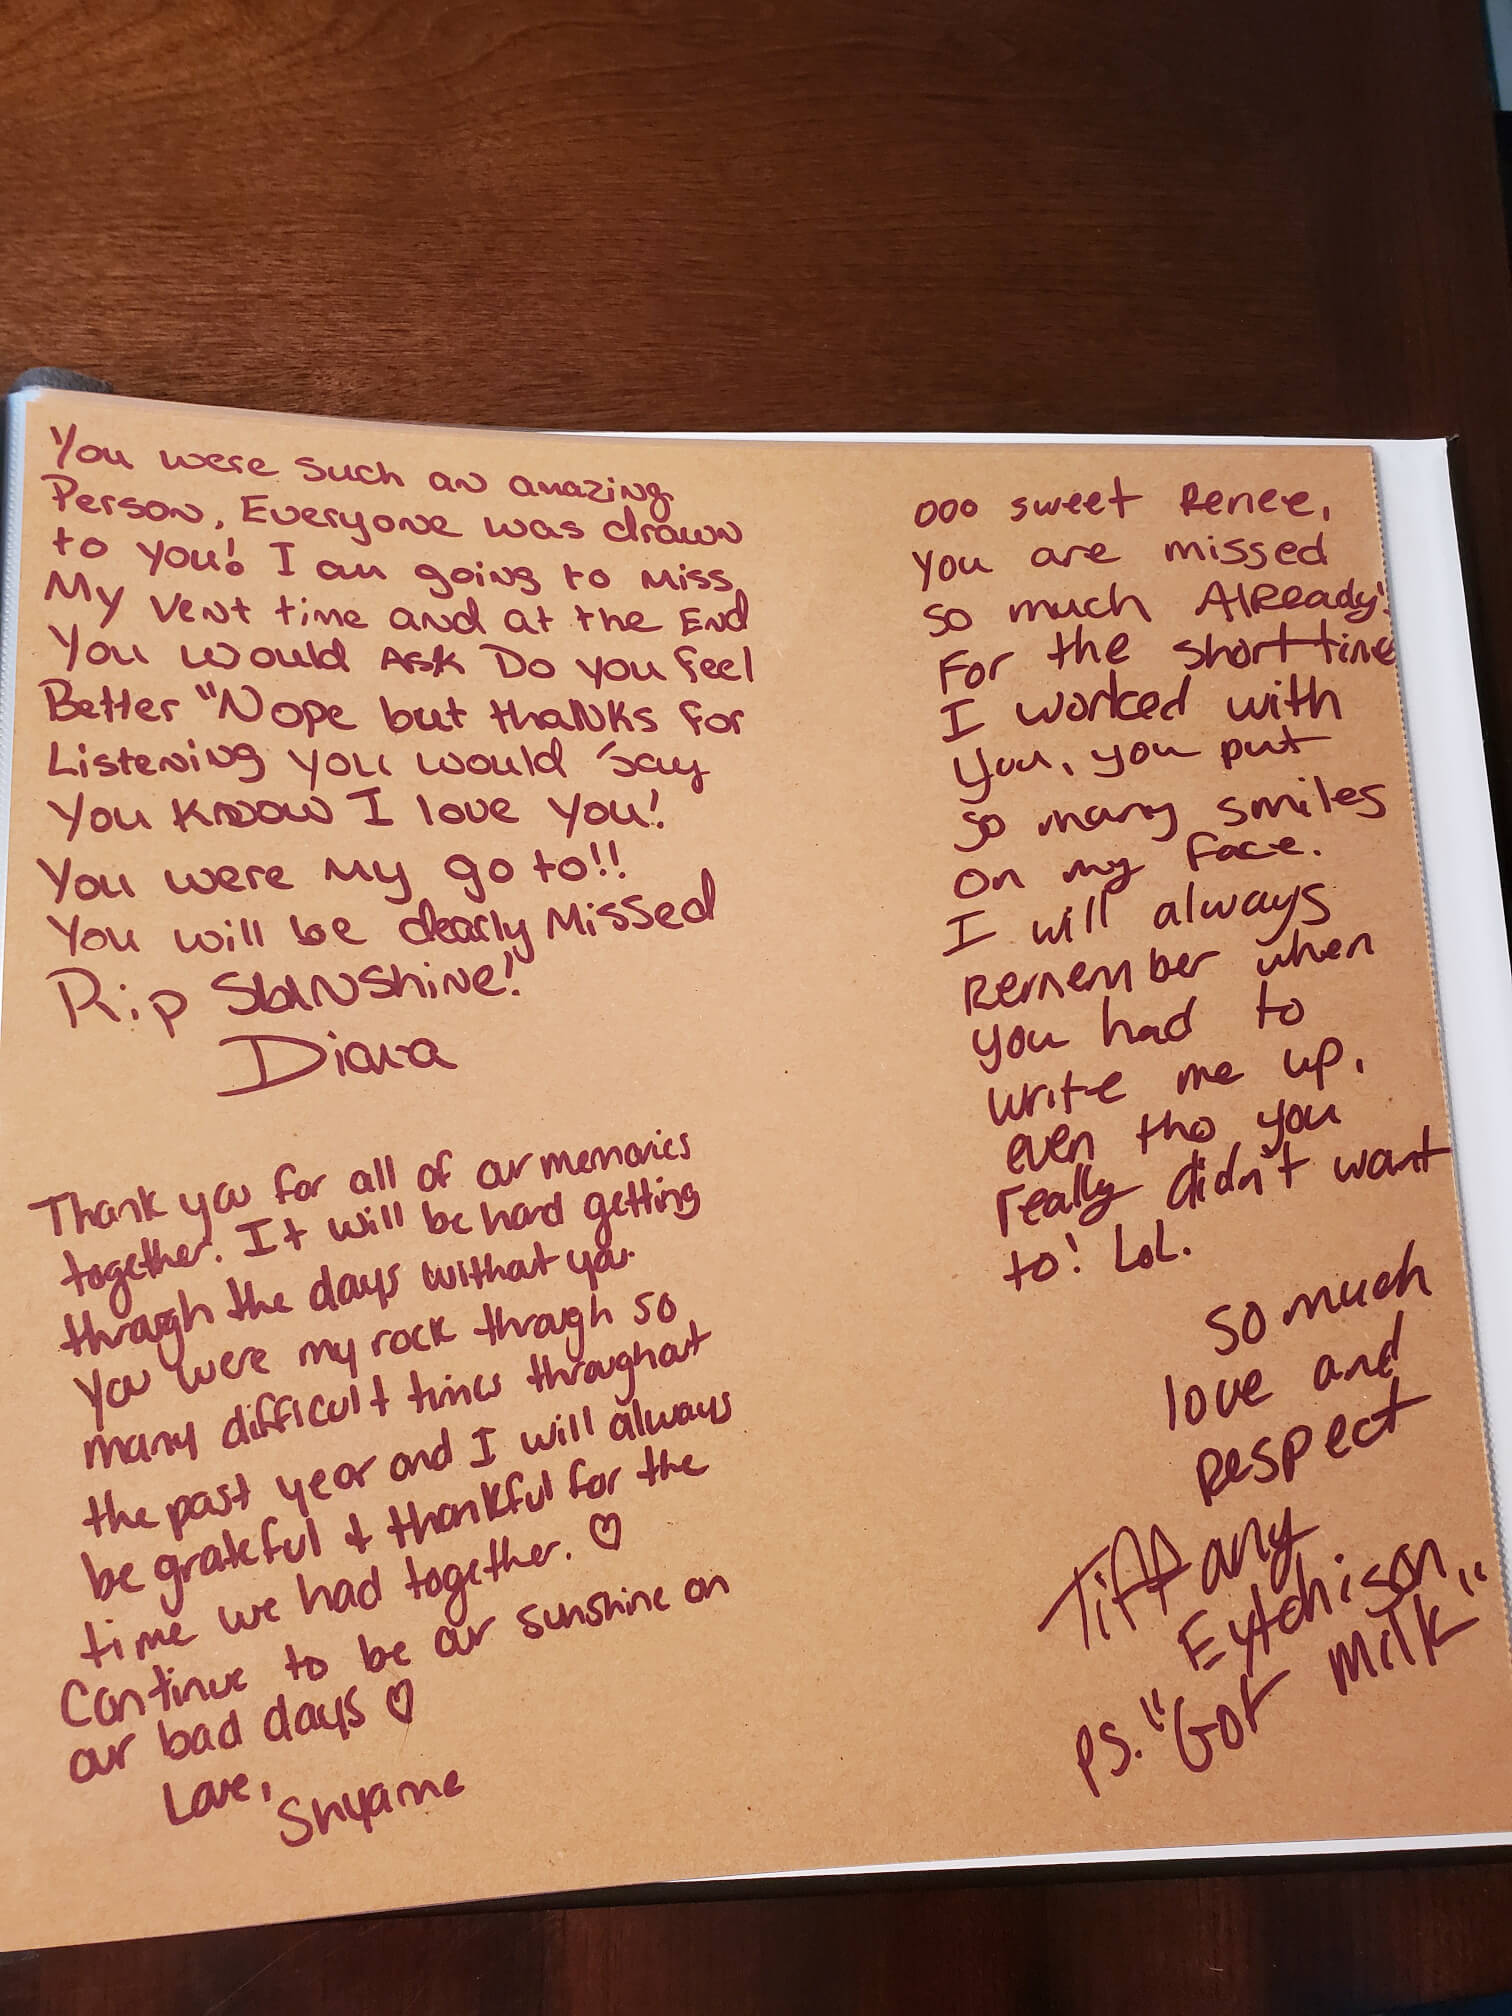 You were such an amazing
Person, Everyone was drawn
to you! I am going to miss
My Vent time and at the End
You would Ask Do you feel
Better "Nope but thaNKs for
Listening you would say
You know I love you!
You were my go to!!
You will be dearly Missed
Rip SUNShine!
Diana
Thank you for all of our memories
together. It will be hard getting
through the days without you.
You were my rock through so
many difficult times throughout
the past year and I will always
be grateful & thankful for the
time we had together. ♡
Continue to be our sunshine on
our bad days ♡
Love,
Shyanne
ooo sweet Renee,
you are missed
so much AlReady!
For the short time
I worked with
you, you put
so many smiles
on my face.
I will always
Remember when
you had to
write me up,
even tho you
really didn't want
to! LoL.
so much
love and
Respect
Tiffany
Eytchison
PS. "Got milk"